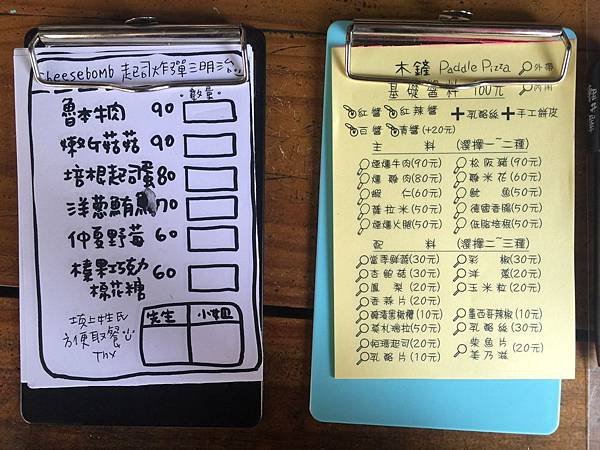 Cheesebomb 起司炸彈三明治
數量
魯本牛肉 90
嫩G菇菇 90
培根起司蛋 80
洋蔥鮪魚 70
仲夏野莓 60
榛果巧克力
棉花糖 60
填上姓氏
方便取餐
Thx
先生 小姐
木鏟 Paddle Pizza 外帶
基礎醬料 100元 內用
紅醬 紅辣醬 + 乳酪絲 + 手工餅皮
白醬 青醬 (+20元)
主 料 (選擇一~二種)
煙燻牛肉(90元) 松阪豬(90元)
燻雞肉(80元) 雞米花(60元)
蝦仁(60元) 魷魚(50元)
薩拉米(50元) 德國香腸(50元)
煙燻火腿(50元) 低脂培根(50元)
配 料 (選擇二~三種)
當季鮮蔬(30元) 彩椒(30元)
杏鮑菇(30元) 洋蔥(20元)
鳳梨(20元) 玉米粒(20元)
香蒜片(20元)
醃漬黑橄欖(10元) 墨西哥辣椒(10元)
莫札瑞拉(50元) 乳酪絲(30元)
帕瑪起司(20元) 柴魚片
乳酪片(10元) 美乃滋 (20元)